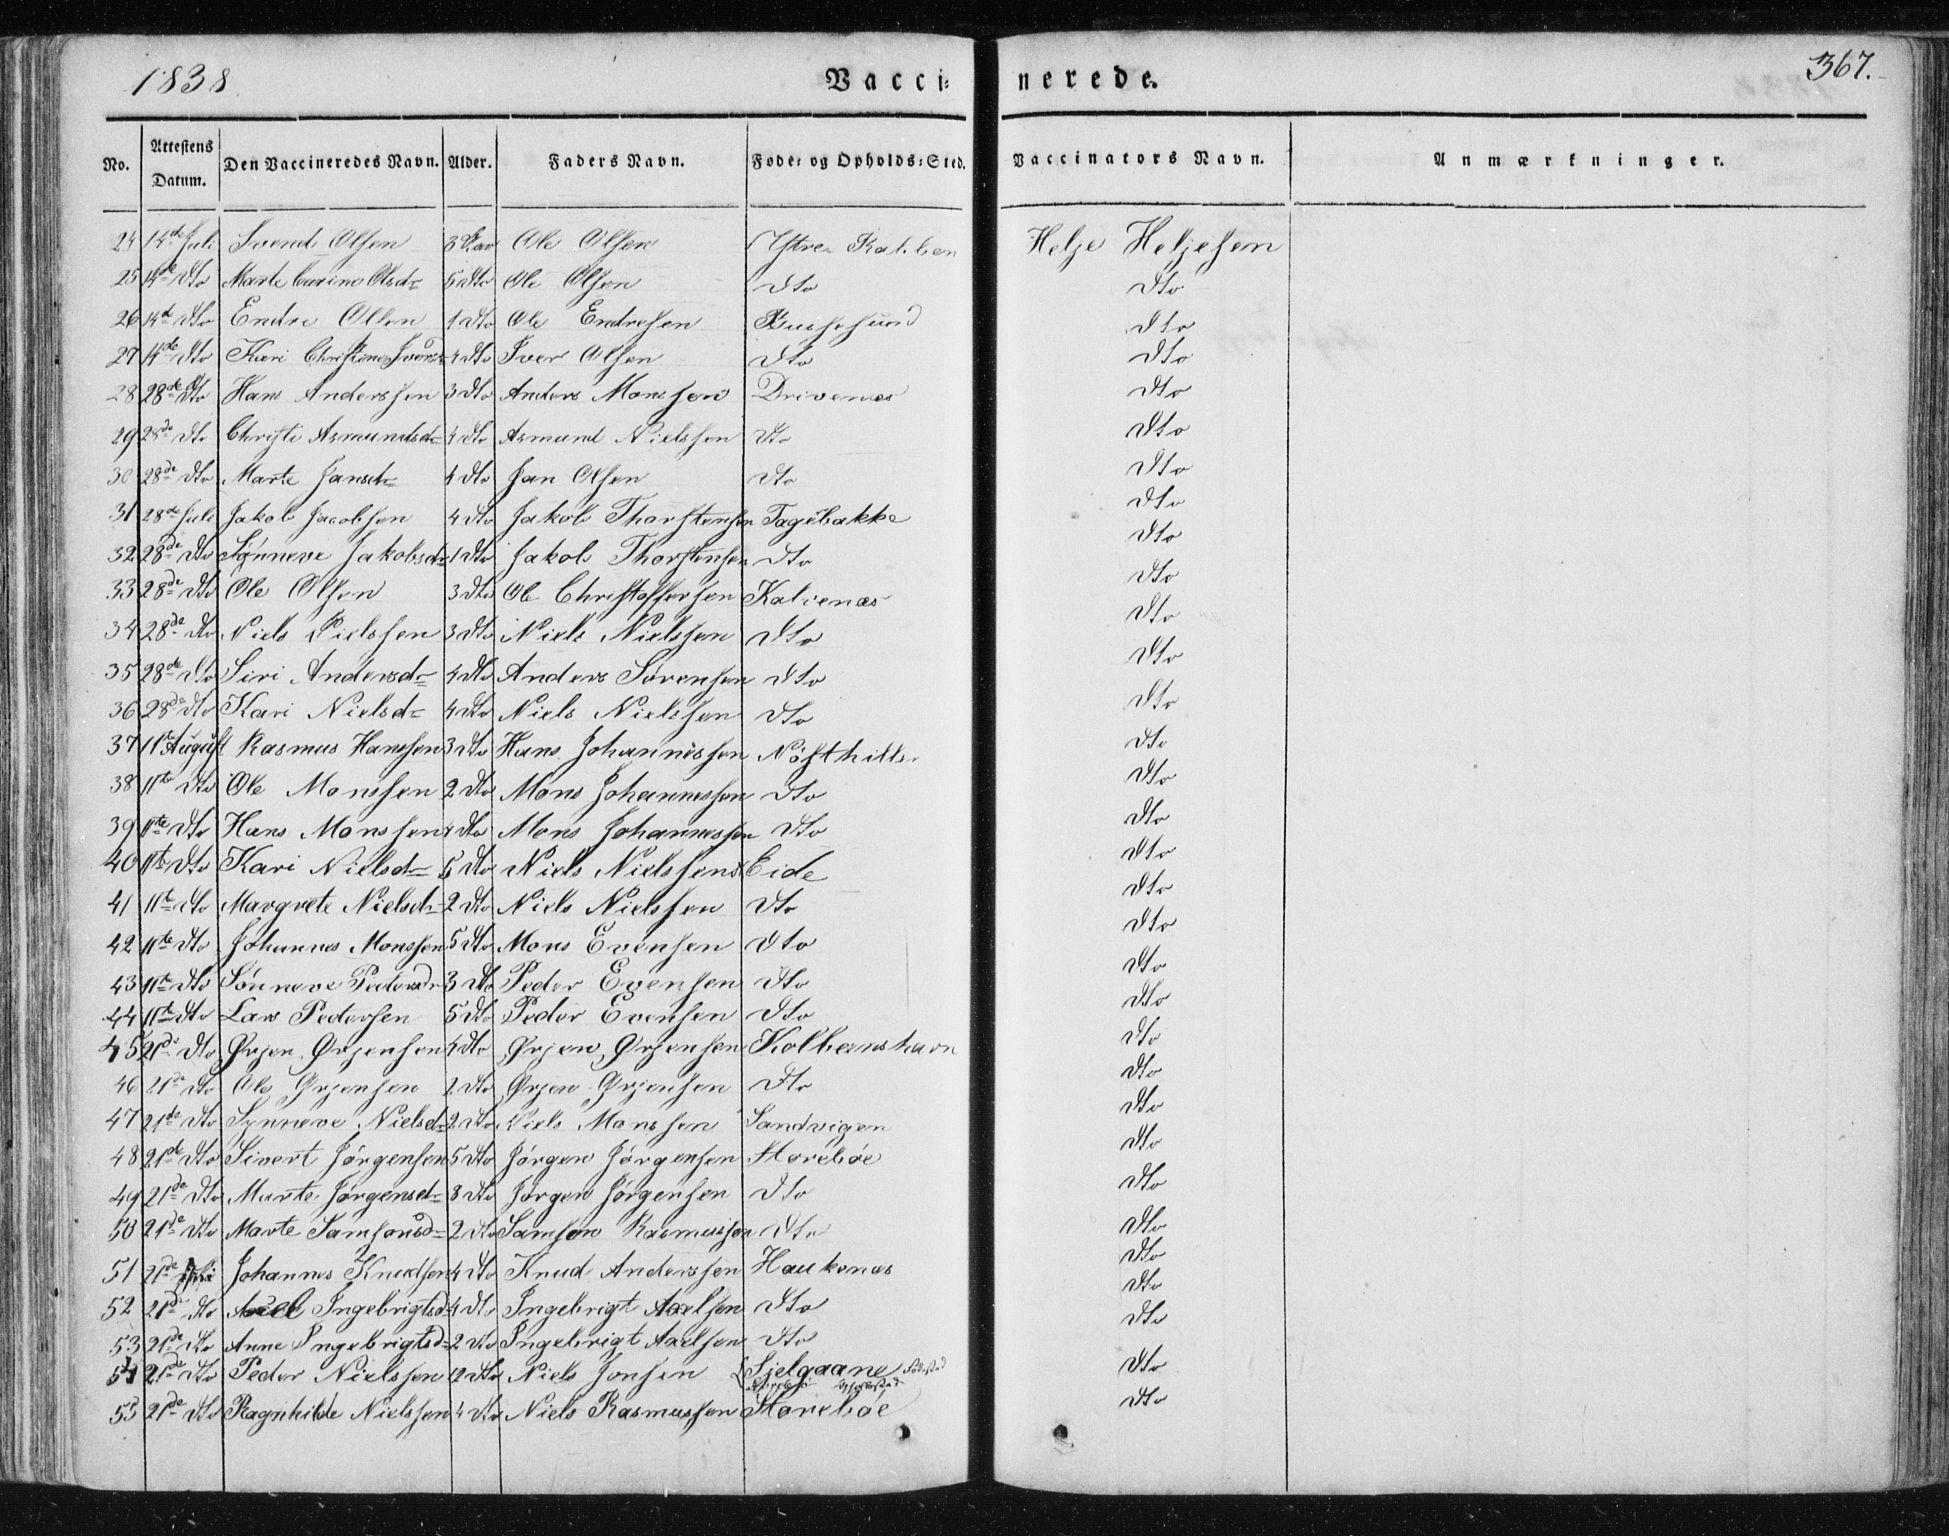 1838
Vaccinerede.
367.
No. Attestens Datum. Den Vaccineredes Navn. Alder. Faders Navn. Føde- og Opholds-Sted. Vaccinators Navn. Anmærkninger.
24 14de Juli Svend Olsen 3 Aar Ole Olsen Ystre Helje Heljesen
25 14de dto Marte Carine Olsdr 5 dto Ole Olsen dto dto
26 14de dto Endre Olsen 1 dto Ole Endresen dto
27 14de dto Kari Christiane 4 dto Iver Olsen dto dto
28 28de dto Hans Anderssen 3 dto Anders Monssen Drivenæs dto
29 28de dto Christi Asmundsd 4 dto Asmund Nielssen dto dto
30 28de dto Marte Jansdr 4 dto Jan Olsen dto dto
31 28de Juli Jakob Jacobsen 4 dto Jakob Thorstensen Tagebakke dto
32 28de dto Synneve Jakobsd 1 dto Jakob Thorstensen dto dto
33 28de dto Ole Olsen 3 dto Ole Christoffersen Kalvenæs dto
34 28de dto Niels Nielssen 3 dto Niels Nielssen dto dto
35 28de dto Siri Andersdr 4 dto Anders Sørensen dto dto
36 28de dto Kari Nielsdr 4 dto Niels Nielssen dto dto
37 11te August Rasmus Hanssen 3 dto Hans Johannessen dto
38 11te dto Ole Monssen 2 dto Mons Johannessen dto dto
39 11te dto Hans Monssen 4 dto Mons Johannessen dto dto
40 11te dto Kari Nielsdr 5 dto Niels Nielssen Eide dto
41 11te dto Margrete Nielsdr 2 dto Niels Nielssen dto dto
42 11te dto Johannes Monssen 5 dto Mons Evensen dto dto
43 11te dto Sönneve Pedersdr 3 dto Peder Evensen dto dto
44 11te dto Lars Pedersen 5 dto Peder Evensen dto dto
45 21de dto Ørjen Ørjensen 4 dto Ørjen Ørjensen Kolbeenshavn dto
46 21de dto Ole Ørjensen 2 dto Ørjen Ørjensen dto dto
47 21de dto Synneve Nielsd 2 dto Niels Monssen Sandvigen dto
48 21de dto Sivert Jørgensen 5 dto Jørgen Jørgensen Storebøe dto
49 21de dto Marte Jørgensdr 8 dto Jørgen Jørgensen dto dto
50 21de dto Marte Samsonsd 2 dto Samson Rasmussen dto dto
51 21de Johannes Knudsen 4 dto Knud Anderssen Haukenæs dto
52 21de dto Axel Ingebrigtsd 4 dto Ingebrigt Axelsen dto dto
53 21de dto Anne Ingebrigtsd 2 dto Ingebrigt Axelsen dto dto
54 21de dto Peder Nielssen 12 dto Niels Jonsen Sjelgaane Fødested dto
Storebø Opholdssted
55 21de dto Ragnhilde Nielssen 4 dto Niels Rasmussen Storebøe dto